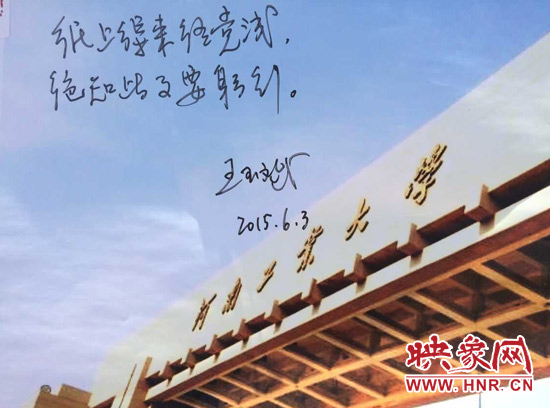 纸上得来终觉浅，
绝知此事要躬行。
2015.6.3
河南工业大学
映象网
WWW.HNR.CN